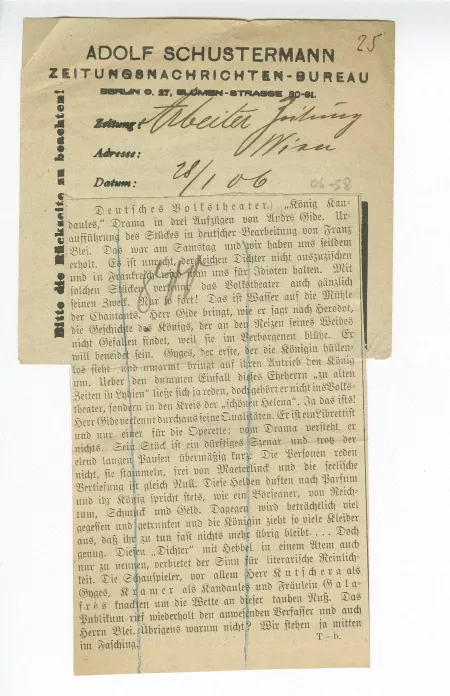 25
ADOLF SCHUSTERMANN
ZEITUNGSNACHRICHTEN-BUREAU
BERLIN O. 27, BLUMEN-STRASSE 80-81.
Bitte die Rückseite zu beachten!
Zeitung: Arbeiter Zeitung
Adresse: Wien
Datum: 28/1 06
06-58
Deutsches Volkstheater.) „König Kan-
daules,“ Drama in drei Aufzügen von André Gide. Ur-
aufführung des Stückes in deutscher Bearbeitung von Franz
Blei. Das war am Samstag und wir haben uns seitdem
erholt. Es ist unrecht, dergleichen Dichter nicht auszuzischen
und in Frankreich wird man uns für Idioten halten. Mit
solchen Stücken verfehlt das Volkstheater auch gänzlich
seinen Zweck. Nur so fort! Das ist Wasser auf die Mühle
der Chauvins. Herr Gide bringt, wie er sagt nach Herodot,
die Geschichte des Königs, der an den Reizen seines Weibes
nicht Gefallen findet, weil sie im Verborgenen blühe. Er
will beneidet sein. Gyges, der erste, der die Königin hüllen-
los sieht und umarmt bringt auf ihren Antrieb den König
um. Ueber den dummen Einfall dieses Eheherrn „zu alten
Zeiten in Lydien“ ließe sich ja reden, doch gehört er nicht ins Volks-
theater, sondern in den Kreis der „schönen Helena“. Ja das ists!
Herr Gide verkennt durchaus seine Qualitäten. Er ist ein Librettist
und nur einer für die Operette; vom Drama versteht er
nichts. Sein Stück ist ein dürftiges Szenar und trotz der
elend langen Pausen übermäßig kurz. Die Personen reden
nicht, sie stammeln, frei von Maeterlinck und die seelische
Vertiefung ist gleich Null. Diese Helden duften nach Parfum
und ihr König spricht stets, wie ein Börseaner, von Reich-
tum, Schmuck und Geld. Dagegen wird beträchtlich viel
gegessen und getrunken und die Königin zieht so viele Kleider
aus, daß ihr zu tun fast nichts mehr übrig bleibt.... Doch
genug. Diesen „Dichter“ mit Hebbel in einem Atem auch
nur zu nennen, verbietet der Sinn für literarische Reinlich-
keit. Die Schauspieler, vor allem Herr Kutschera als
Gyges, Kramer als Kandaules und Fräulein Gala-
frés knackten um die Wette an dieser tauben Nuß. Das
Publikum rief wiederholt den anwesenden Verfasser und auch
Herrn Blei. Übrigens warum nicht? Wir stehen ja mitten
im Fasching.
T-b.